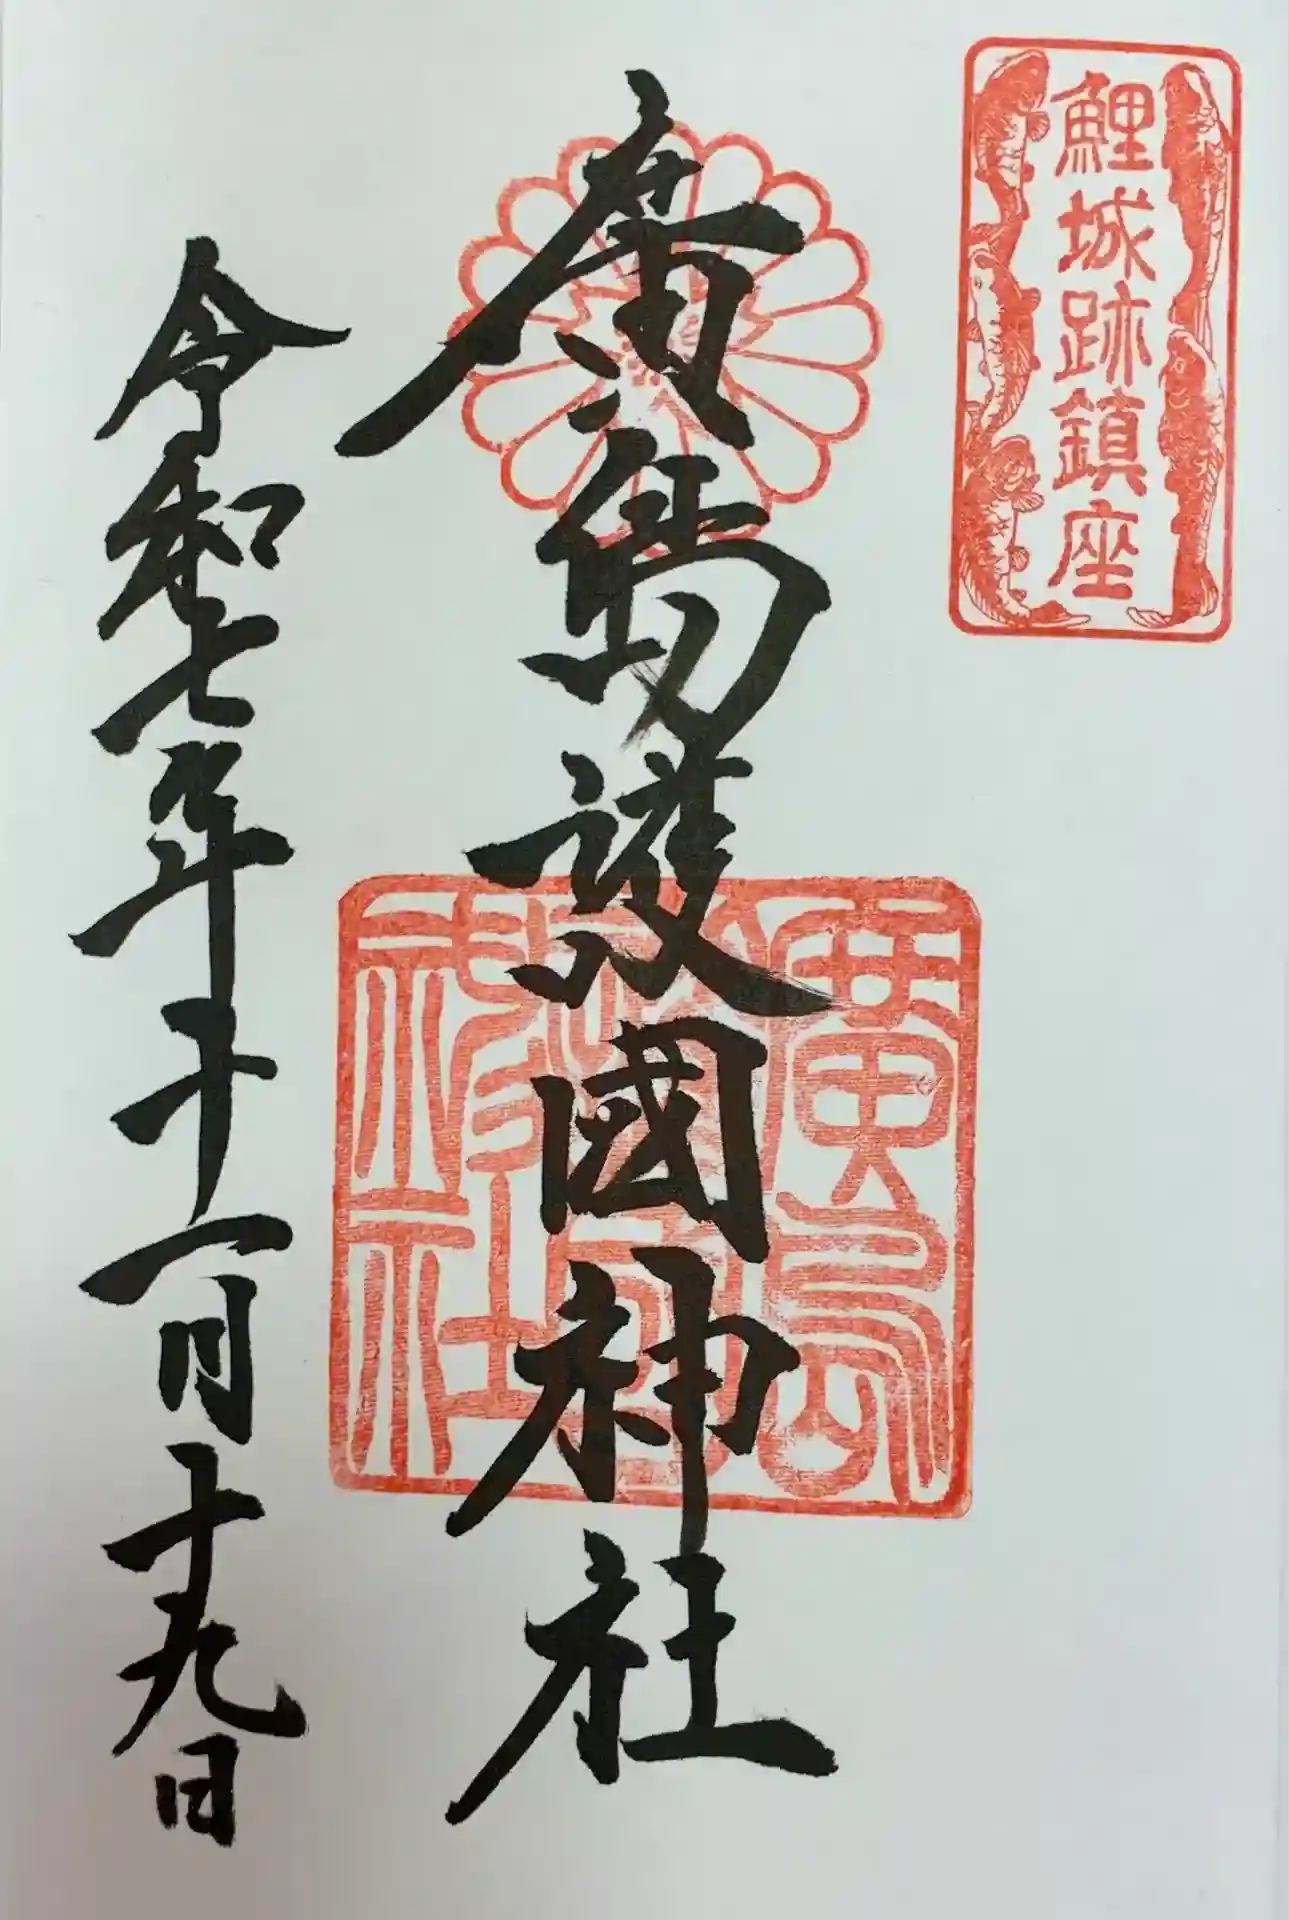 鯉城跡鎮座
廣島護國神社
廣島護國神社
令和七年十一月十九日